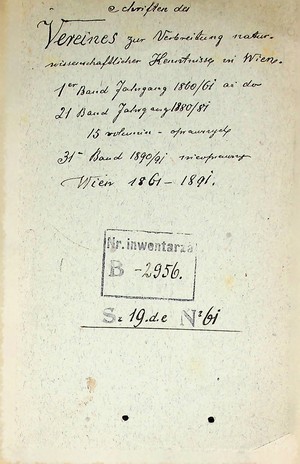 Schriften des
Vereines zur Verbreitung natur-
wissenschaftlicher Kenntnisse in Wien.
1er Band Jahrgang 1860/61 až do
21 Band Jahrgang 1880/81
15 volumin - oprawnych
31- Band 1890/91 nieoprawny
Wien 1861-1891.
Nr. inwentarza
B -2956.
S: 19.d.e No 61